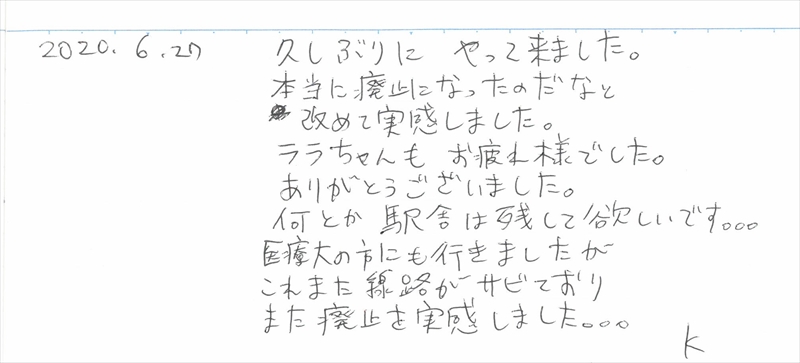 2020. 6.27 久しぶりに やって来ました。
本当に廃止になったのだなと
改めて実感しました。
ララちゃんも お疲れ様でした。
ありがとうございました。
何とか 駅舎は残して欲しいです。。。
医療大の方にも行きましたが
これまた線路がサビており
また廃止を実感しました。。。
K